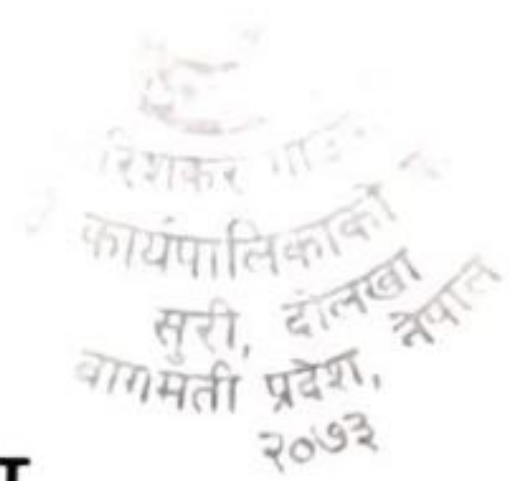 कार्यपालिकाको
सुरी, दोलखा
बागमती प्रदेश, नेपाल
२०७३